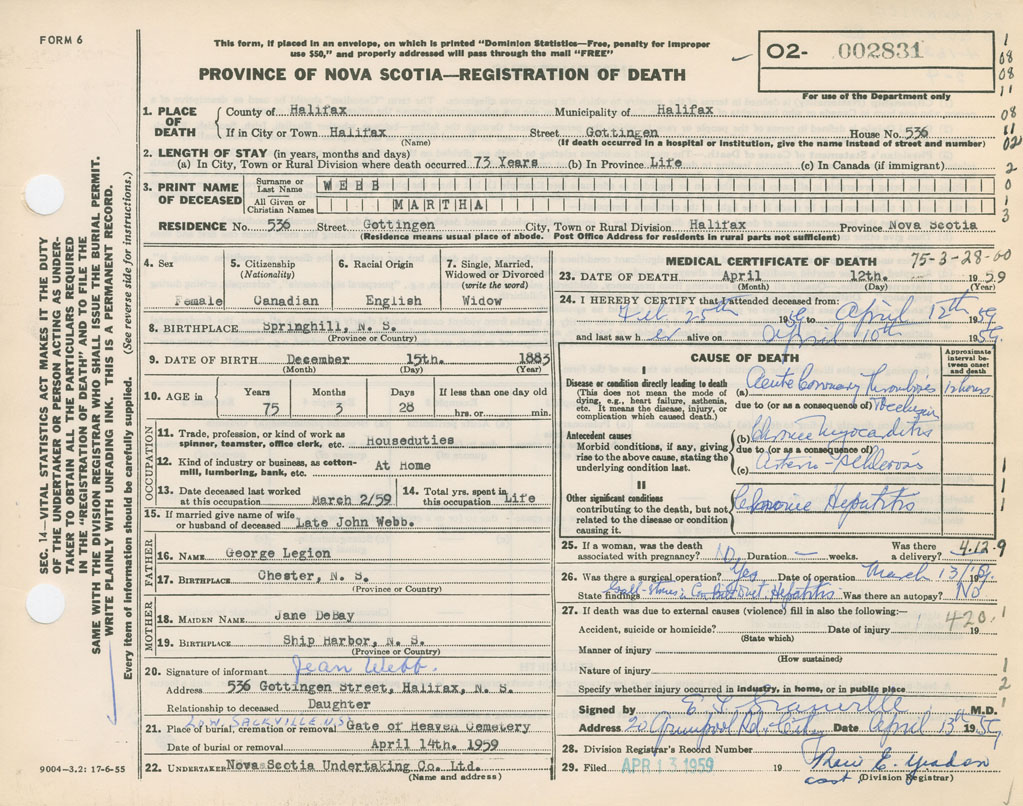 FORM 6
This form, if placed in an envelope, on which is printed "Dominion Statistics—Free, penalty for improper
use $50," and properly addressed will pass through the mail "FREE"
PROVINCE OF NOVA SCOTIA—REGISTRATION OF DEATH
02- 002831
For use of the Department only
1
08
08
11
08
11
02
2
0
1
3
SEC. 14—VITAL STATISTICS ACT MAKES IT THE DUTY
OF THE UNDERTAKER OR PERSON ACTING AS UNDER-
TAKER TO OBTAIN ALL THE PARTICULARS REQUIRED
IN THE "REGISTRATION OF DEATH" AND TO FILE THE
SAME WITH THE DIVISION REGISTRAR WHO SHALL ISSUE THE BURIAL PERMIT.
WRITE PLAINLY WITH UNFADING INK. THIS IS A PERMANENT RECORD.
Every item of information should be carefully supplied. (See reverse side for instructions.)
1. PLACE OF DEATH County of Halifax Municipality of Halifax
If in City or Town Halifax Street Gottingen House No. 536
(Name) (If death occurred in a hospital or institution, give the name instead of street and number)
2. LENGTH OF STAY (in years, months and days)
(a) In City, Town or Rural Division where death occurred 73 Years (b) In Province Life (c) In Canada (if immigrant)
3. PRINT NAME OF DECEASED Surname or Last Name WEBB
All Given or Christian Names MARTHA
RESIDENCE No. 536 Street Gottingen City, Town or Rural Division Halifax Province Nova Scotia
(Residence means usual place of abode. Post Office Address for residents in rural parts not sufficient)
4. Sex Female
5. Citizenship (Nationality) Canadian
6. Racial Origin English
7. Single, Married, Widowed or Divorced (write the word) Widow
8. BIRTHPLACE Springhill, N. S.
(Province or Country)
9. DATE OF BIRTH December 15th. 1883
(Month) (Day) (Year)
10. AGE in Years Months Days If less than one day old
75 3 28 hrs. or min.
OCCUPATION
11. Trade, profession, or kind of work as spinner, teamster, office clerk, etc. Houseduties
12. Kind of industry or business, as cotton-mill, lumbering, bank, etc. At Home
13. Date deceased last worked at this occupation March 2/59 14. Total yrs. spent in this occupation Life
15. If married give name of wife or husband of deceased Late John Webb.
FATHER
16. NAME George Legion
17. BIRTHPLACE Chester, N. S.
(Province or Country)
MOTHER
18. MAIDEN NAME Jane DeBay
19. BIRTHPLACE Ship Harbor, N. S.
(Province or Country)
20. Signature of informant Jean Webb.
Address 536 Gottingen Street, Halifax, N. S.
Relationship to deceased Daughter
LOW. SACKVILLE N.S.
21. Place of burial, cremation or removal Gate of Heaven Cemetery
Date of burial or removal April 14th. 1959
22. UNDERTAKER Nova Scotia Undertaking Co. Ltd.
(Name and address)
9004-3.2: 17-6-55
MEDICAL CERTIFICATE OF DEATH 75-3-28-00
23. DATE OF DEATH April 12th. 1959
(Month) (Day) (Year)
24. I HEREBY CERTIFY that I attended deceased from:
Feb 25th 1959 to April 12th 1959
and last saw her alive on April 10th 1959.
CAUSE OF DEATH
Approximate interval between onset and death
I
Disease or condition directly leading to death
(This does not mean the mode of dying, e.g., heart failure, asthenia, etc. It means the disease, injury, or complication which caused death.)
(a) Acute Coronary Thrombosis 12 hours
due to (or as a consequence of) Occlusion
Antecedent causes
Morbid conditions, if any, giving rise to the above cause, stating the underlying condition last.
(b) Chronic Myocarditis
due to (or as a consequence of)
(c) Arterio-Sclerosis
II
Other significant conditions
contributing to the death, but not related to the disease or condition causing it.
Chronic Hepatitis
1
1
1
25. If a woman, was the death associated with pregnancy? No Duration — weeks. Was there a delivery? 4.12-9
26. Was there a surgical operation? Yes Date of operation March 13/1959.
State findings Gall-stones Hepatitis Was there an autopsy? No
27. If death was due to external causes (violence) fill in also the following:—
Accident, suicide or homicide? Date of injury 19 420.1
(State which)
Manner of injury
(How sustained)
Nature of injury
1
Specify whether injury occurred in industry, in home, or in public place 2
Signed by E. L. Granville M.D.
Address 20 Rd. City Date April 13th 1959
28. Division Registrar's Record Number
29. Filed APR 13 1959 19
(Division Registrar)